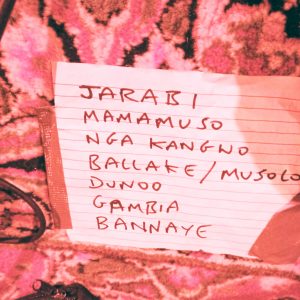 JARABI
MAMAMUSO
NGA KANGNO
BALLAKE/MUSOLO
DUNOO
GAMBIA
BANNAYE